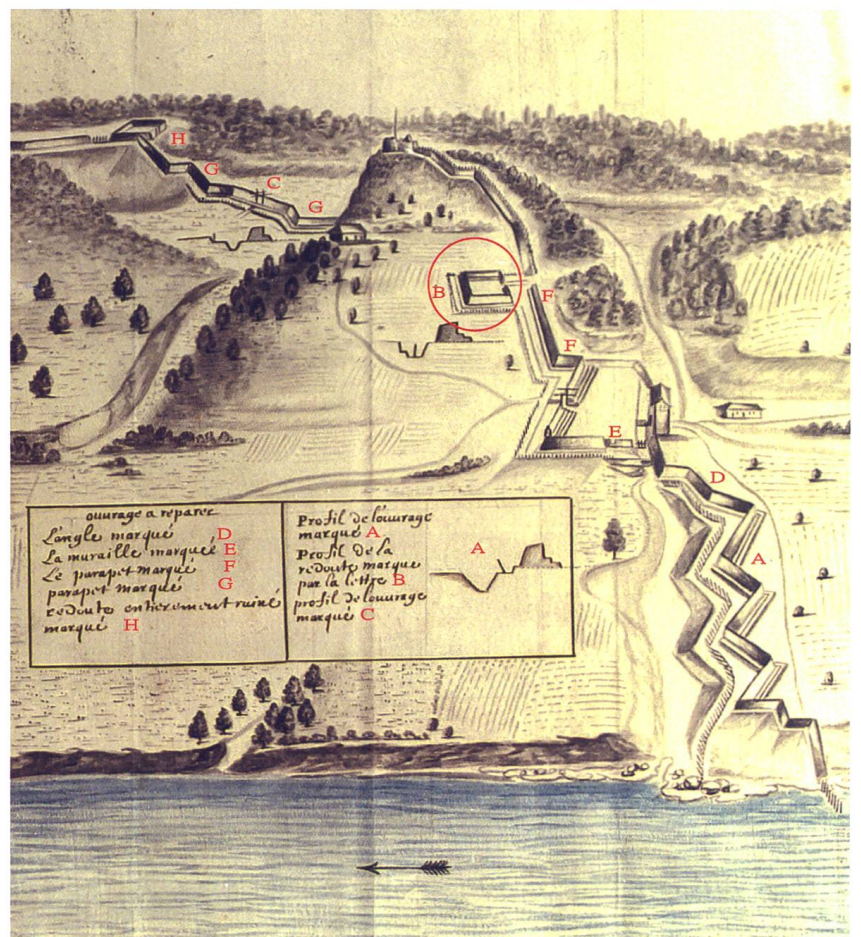 H
G
C
G
B
F
F
E
D
A
ouvrage a reparer
Langle marqué D
La muraille marqué E
Le parapet marqué F
parapet marqué G
redoute entierement ruiné
marqué H
Profil de louvrage
marqué A
Profil de la
redoute marque
par la lettre B
profil de louvrage
marqué C
A